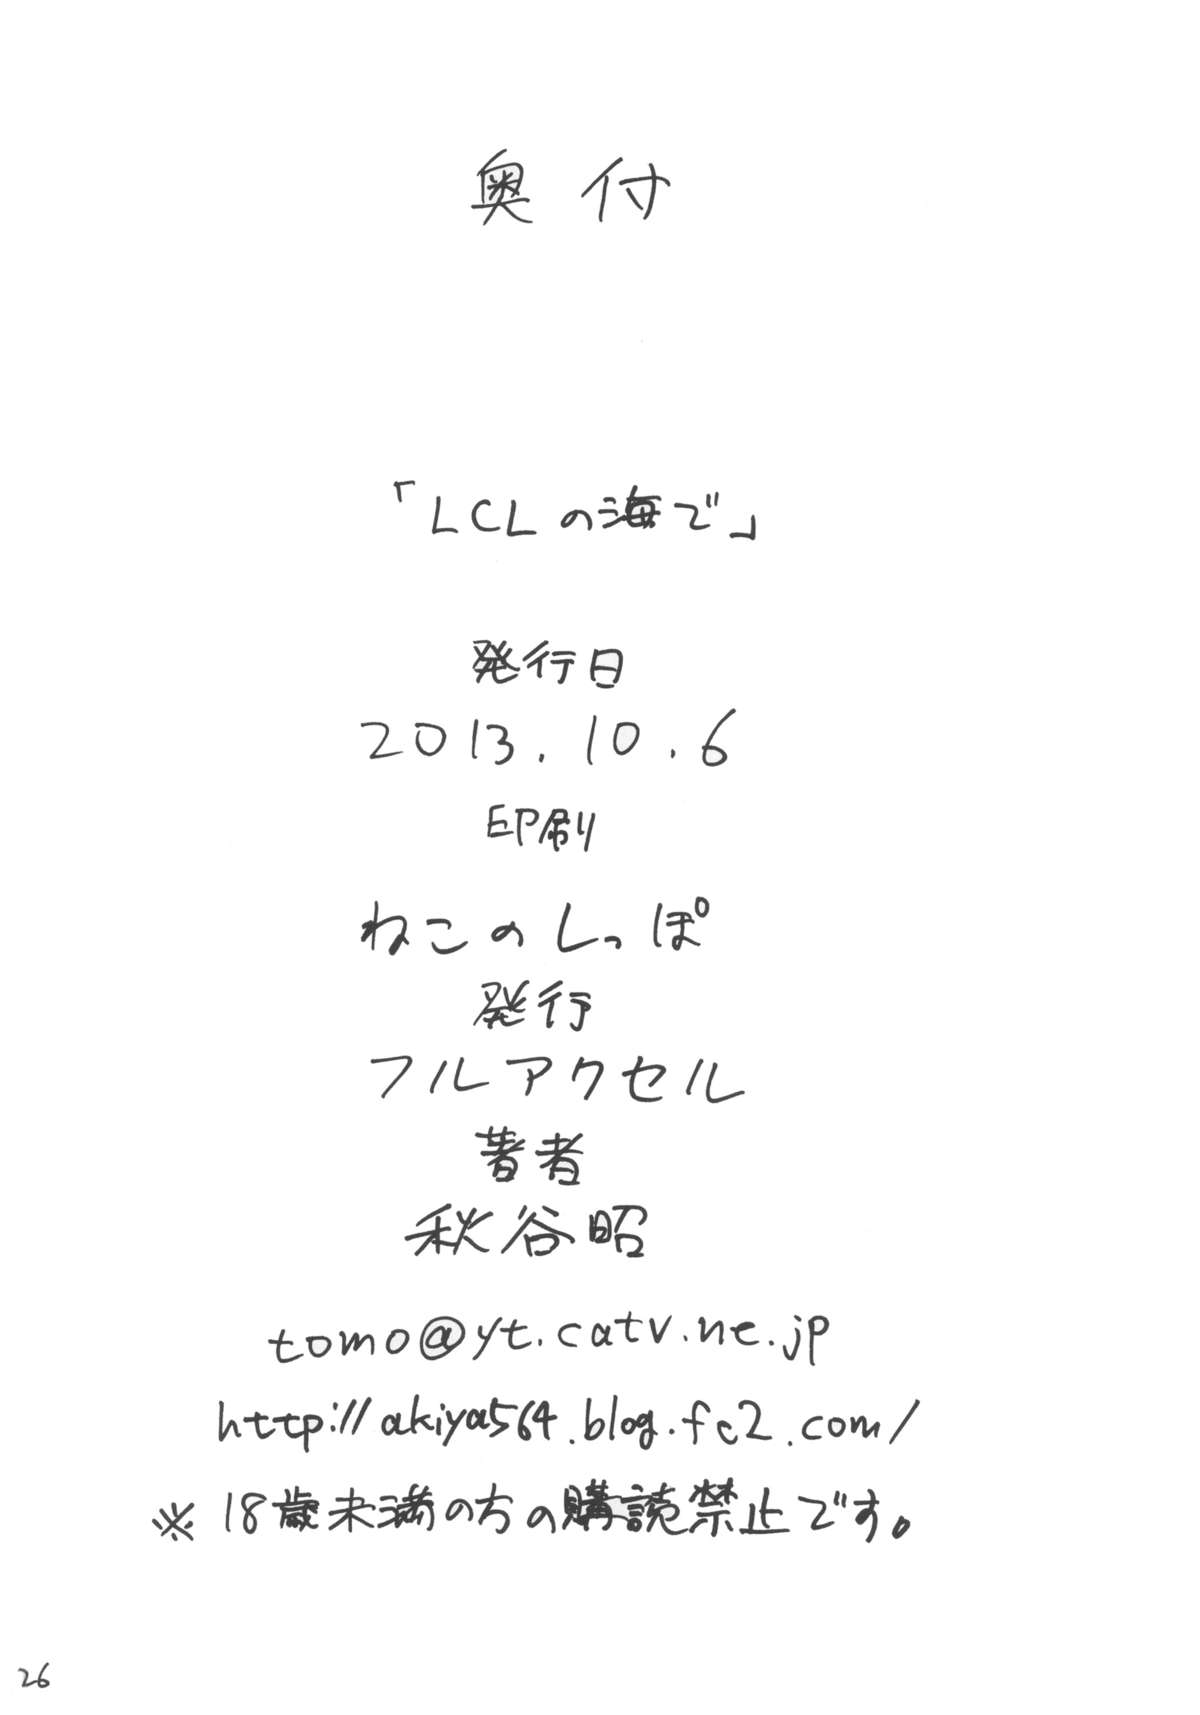 奥付
「LCLの海で」
発行日
2013.10.6
印刷
ねこのしっぽ
発行
フルアクセル
著者
秋谷昭
tomo@yt.catv.ne.jp
http://akiya564.blog.fc2.com/
※18歳未満の方の購読禁止です。
26